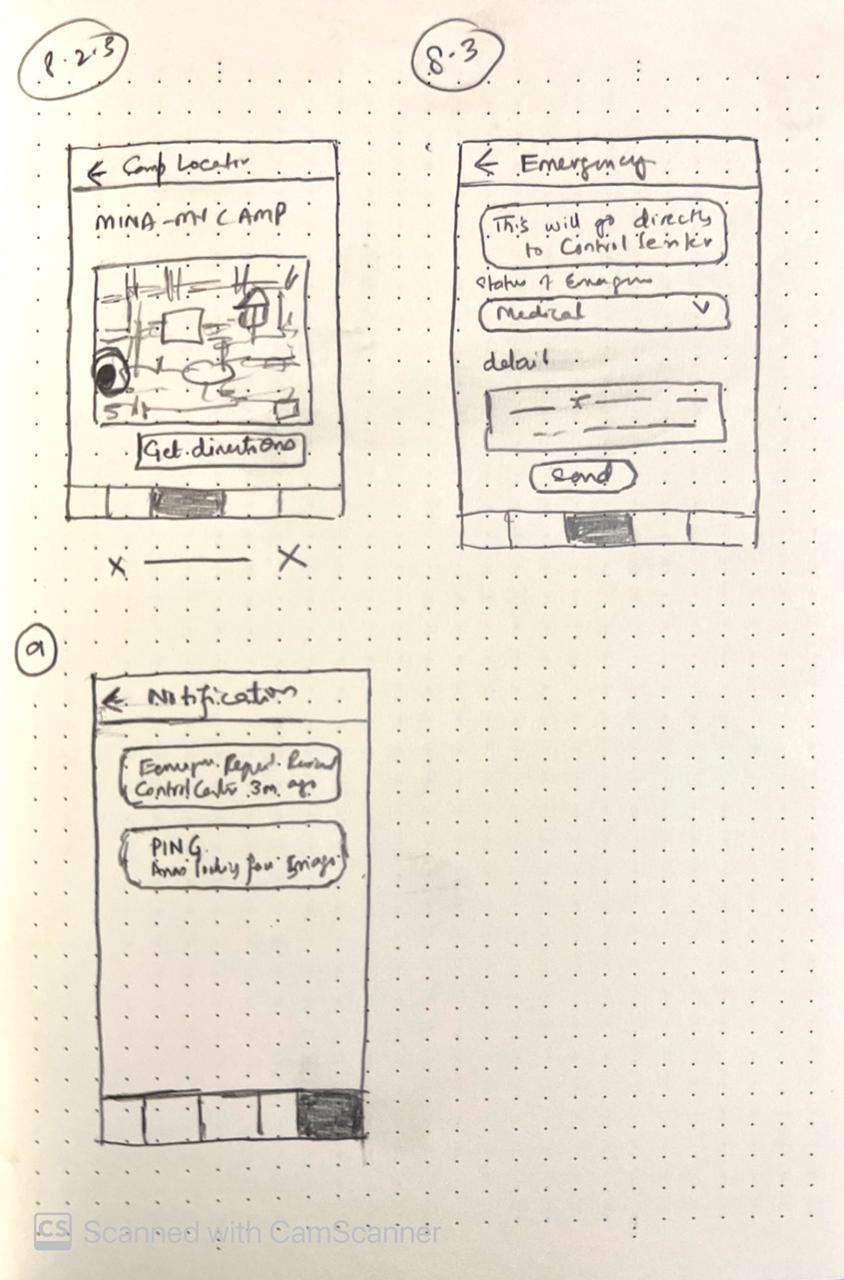 8.2.3
8.3
← Camp Locator
MINA - MY CAMP
Get directions
x — x
← Emergency
This will go directly
to Control Center
Status of Emergency
Medical
detail
Send
9
← Notification
Control Center 3m ago
PING
looking for
CS Scanned with CamScanner